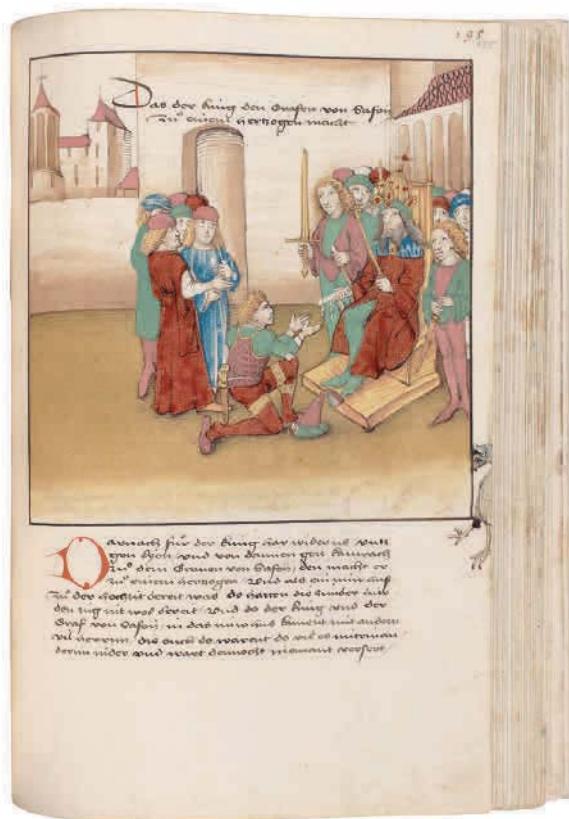 195
Das der küng den Grafen von Safoy
zuͦ einem hertzogen macht
Darnach für der küng har wider us untz
gon lyon und von dannen gen kamrach
zuͦ dem Graven von Safoy, den macht er
zuͦ einem hertzogen Und als ein nüw hus
zuͦ der hochzit bereit was do hatten die zimber lüt
den tag nit wol bereit Und do der küng und der
Graf von Safoy in das nüw hus kament mit andern
vil herren die ouch do warent do viel es mitenan
dern nider und wart dennocht niemant versert